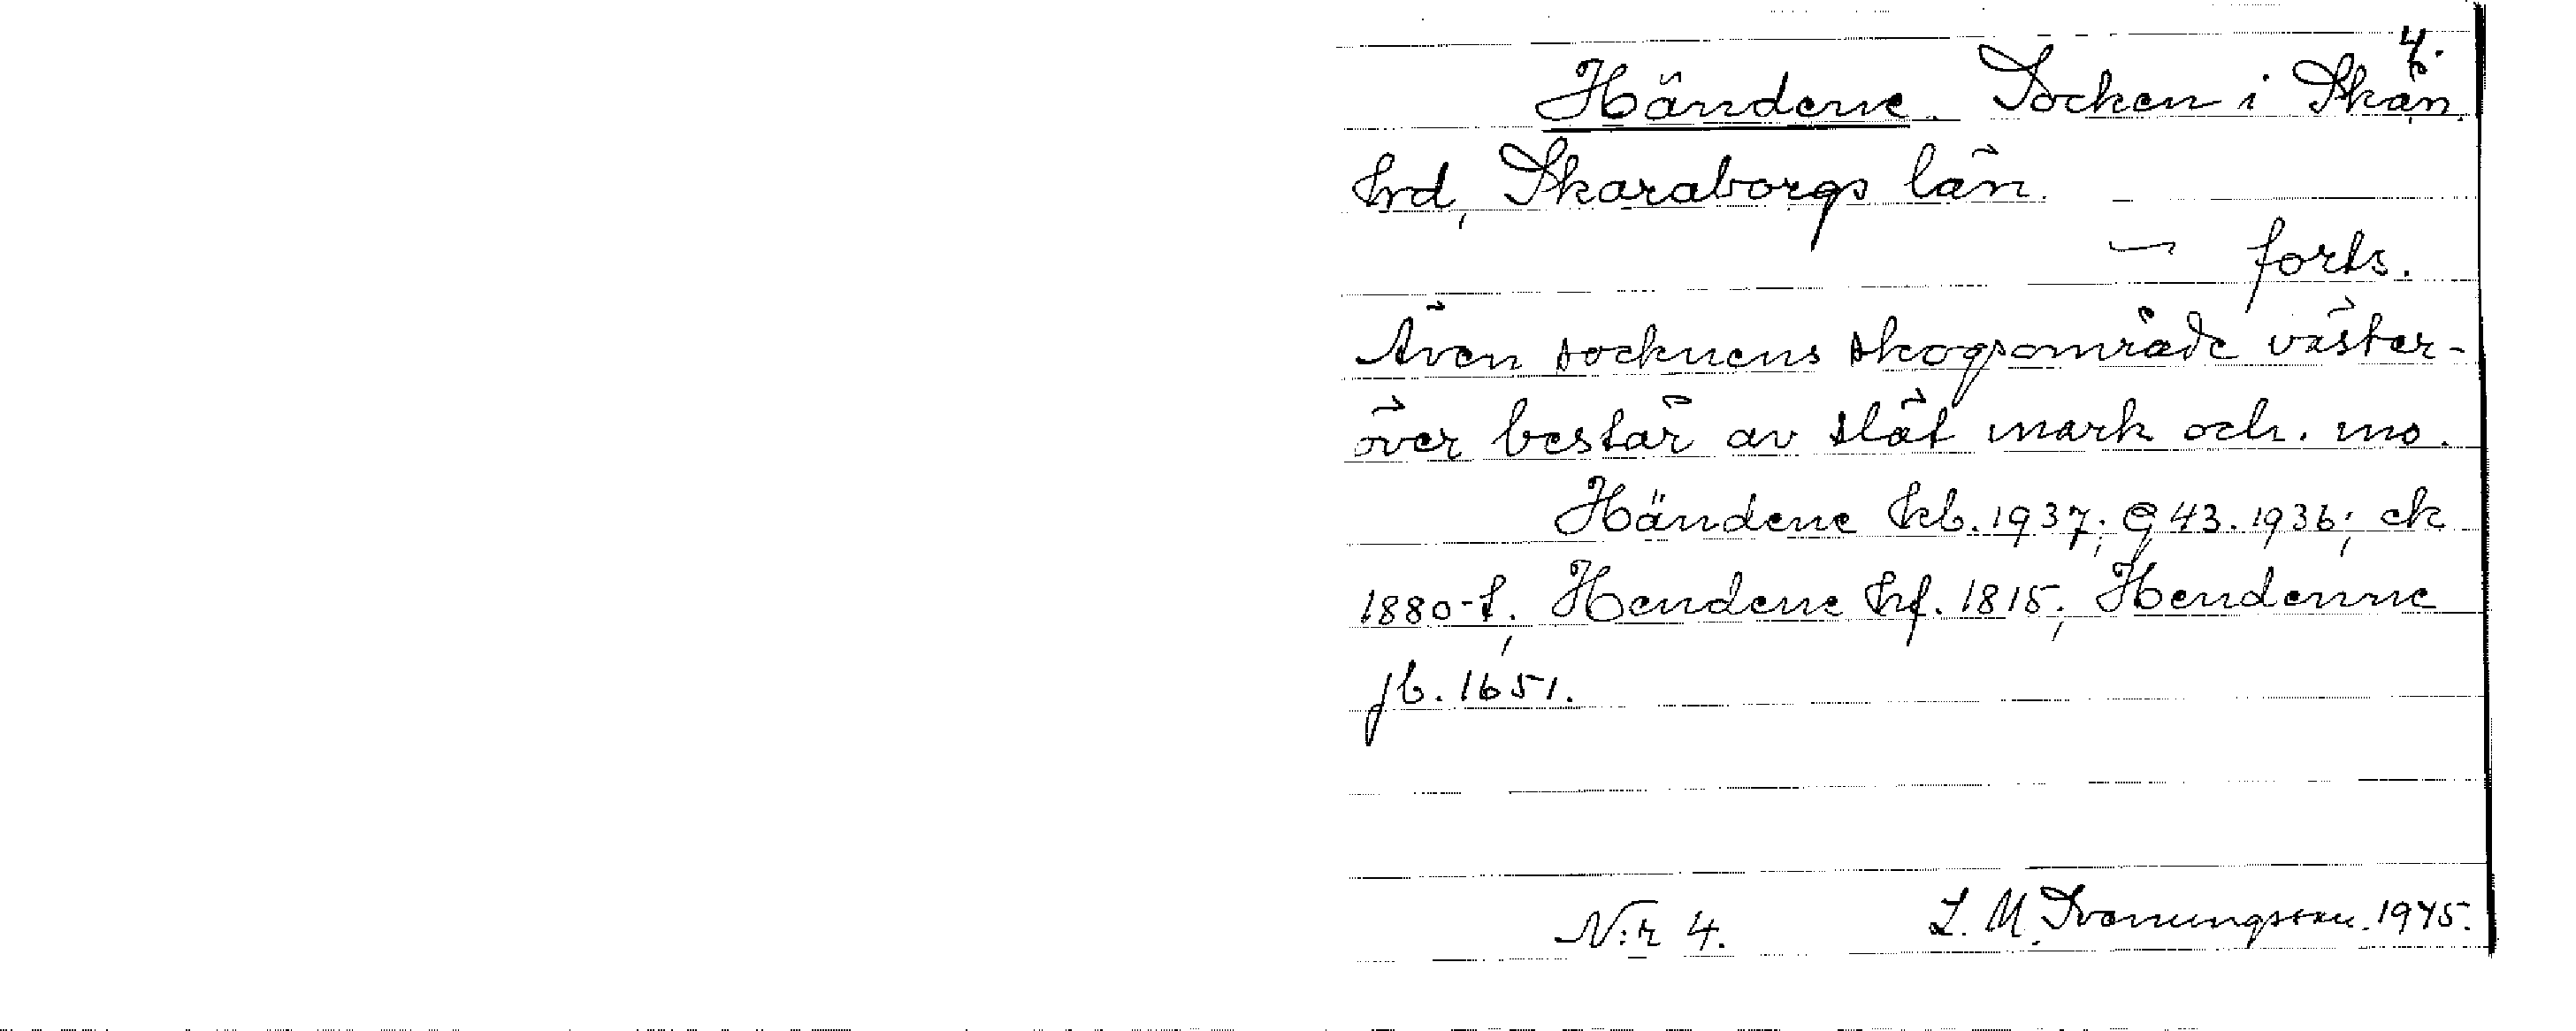 4.
Händene. Socken i Skån.
hrd, Skaraborgs län.
— forts.
Även socknens skogsområde väster-
över består av slät mark och. mo.
Händene kb. 1937; G 43. 1936; ek
1880-t; Hendene hf. 1815; Hendenne
jb. 1651.
N:r 4. L. M. Svenungsson. 1945.